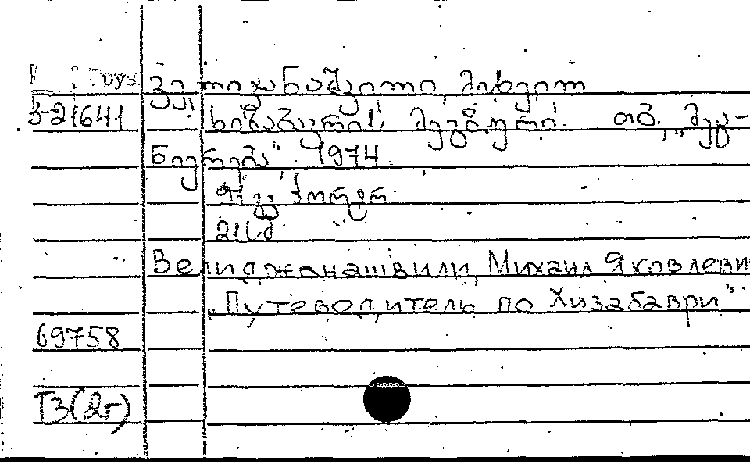 ველიჯანაშვილი, მიხეილ
3-21641 ხიზაბავრის მეგზური. თბ., „მეც-
ნიერება“. 1974
21 სმ
Велиджанашвили, Михаил Яковлеви
„Путеводитель по Хизабаври“
69758
Т3(2г)